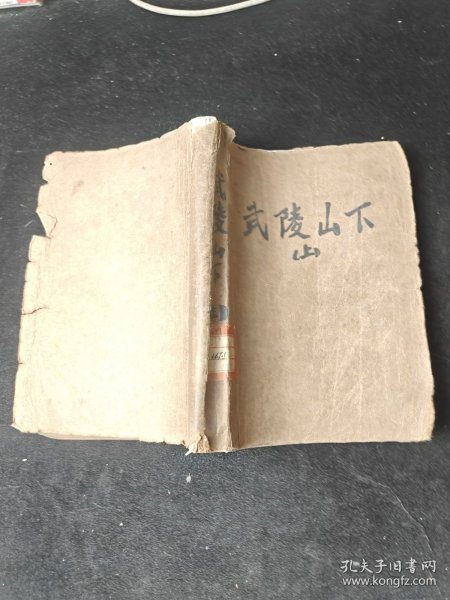 武陵山下
武陵山下
孔夫子旧书网
www.kongfz.com